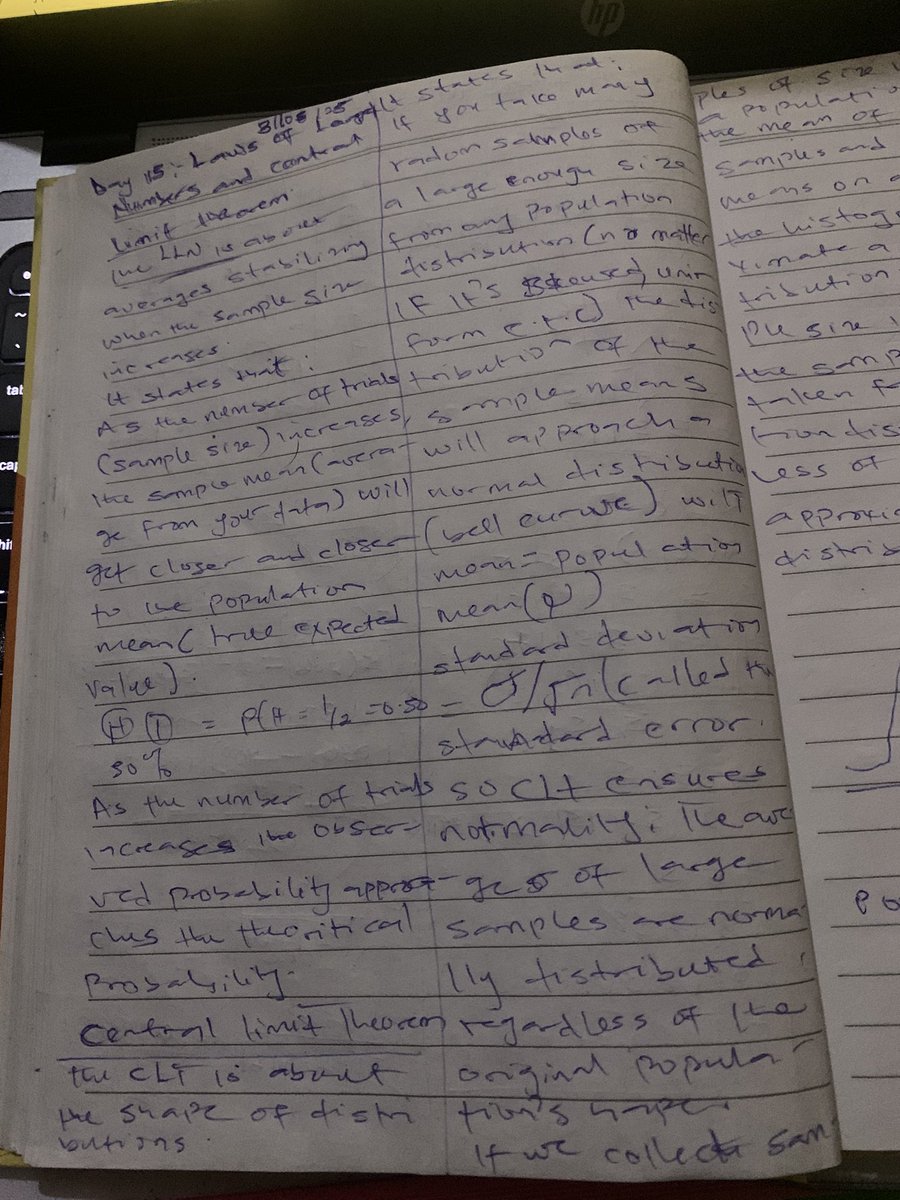 hp
31/08/25
Day 15: Laws of Large
Numbers and central
limit theorem
the LLN is about
averages stabilizing
when the sample size
increases.
It states that:
As the number of trials
(sample size) increases,
the sample mean (avera-
ge from your data) will
get closer and closer
to the population
mean (true expected
value).
(H) (T) = P(H = 1/2 = 0.50 =
50%
As the number of trials
increases the obser-
ved probability approa-
ches the theoritical
probability.
Central limit Theorem
the CLT is about
the shape of distri
butions.
It states that:
If you take many
radom samples of
a large enough size
from any population
distribution (no matter
if it's skewed, uni
form e.t.c) the dis
tribution of the
sample means
will approach a
normal distributio
(bell curve) with
mean = population
mean (μ)
standard deviation
σ/√n (called the
standard error.
so CLT ensures
normality: The ave
ges of large
samples are norma
lly distributed,
regardless of the
original popula-
tion's shape.
If we collect sam
ples of size
a populati
the mean of
samples and
means on a
the histog
ximate a
tribution
ple size
the samp
taken f
tion dis
less of
approxi
distrib
Po
tab